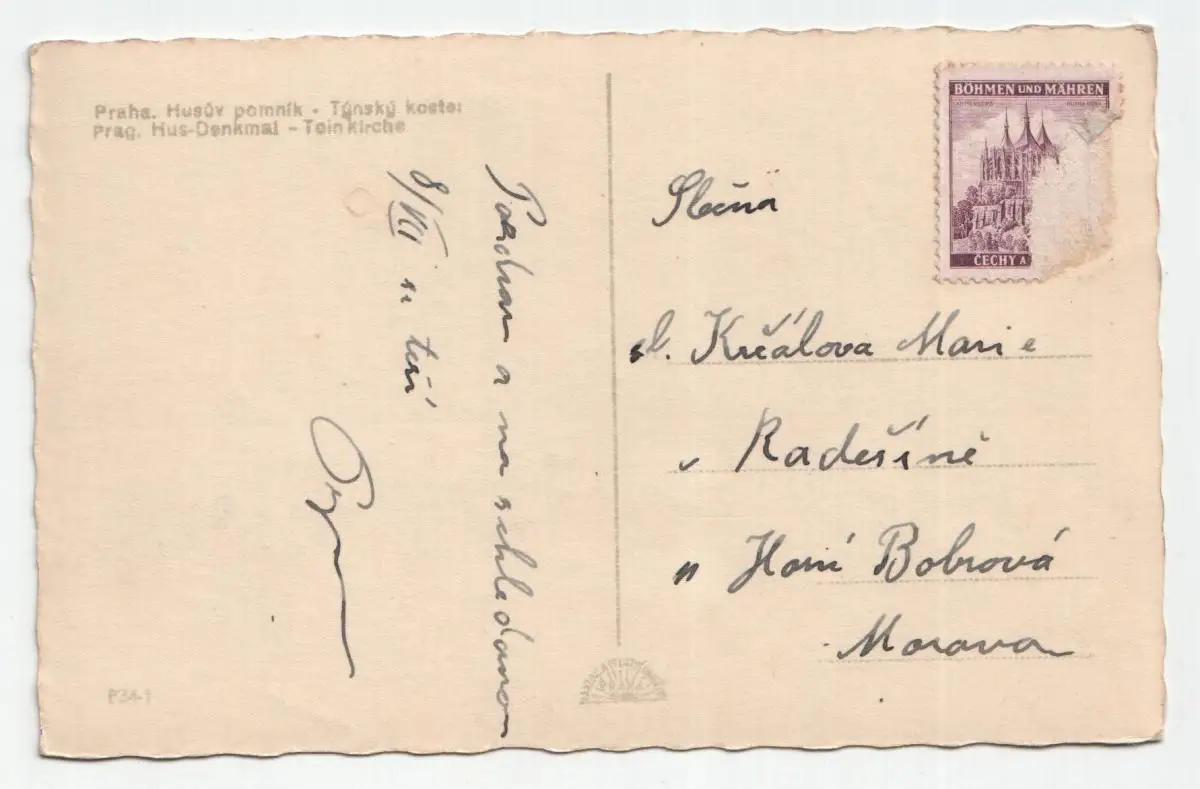 Praha. Husův pomník - Týnský kostel
Prag. Hus-Denkmal - Teinkirche
BÖHMEN UND MÄHREN
ČECHY A
Slečna
sl. Krčálova Marie
v Radešíně
Horní Bobrová
Morava
Pozdrav a na schledanou
8/VII
P34-1